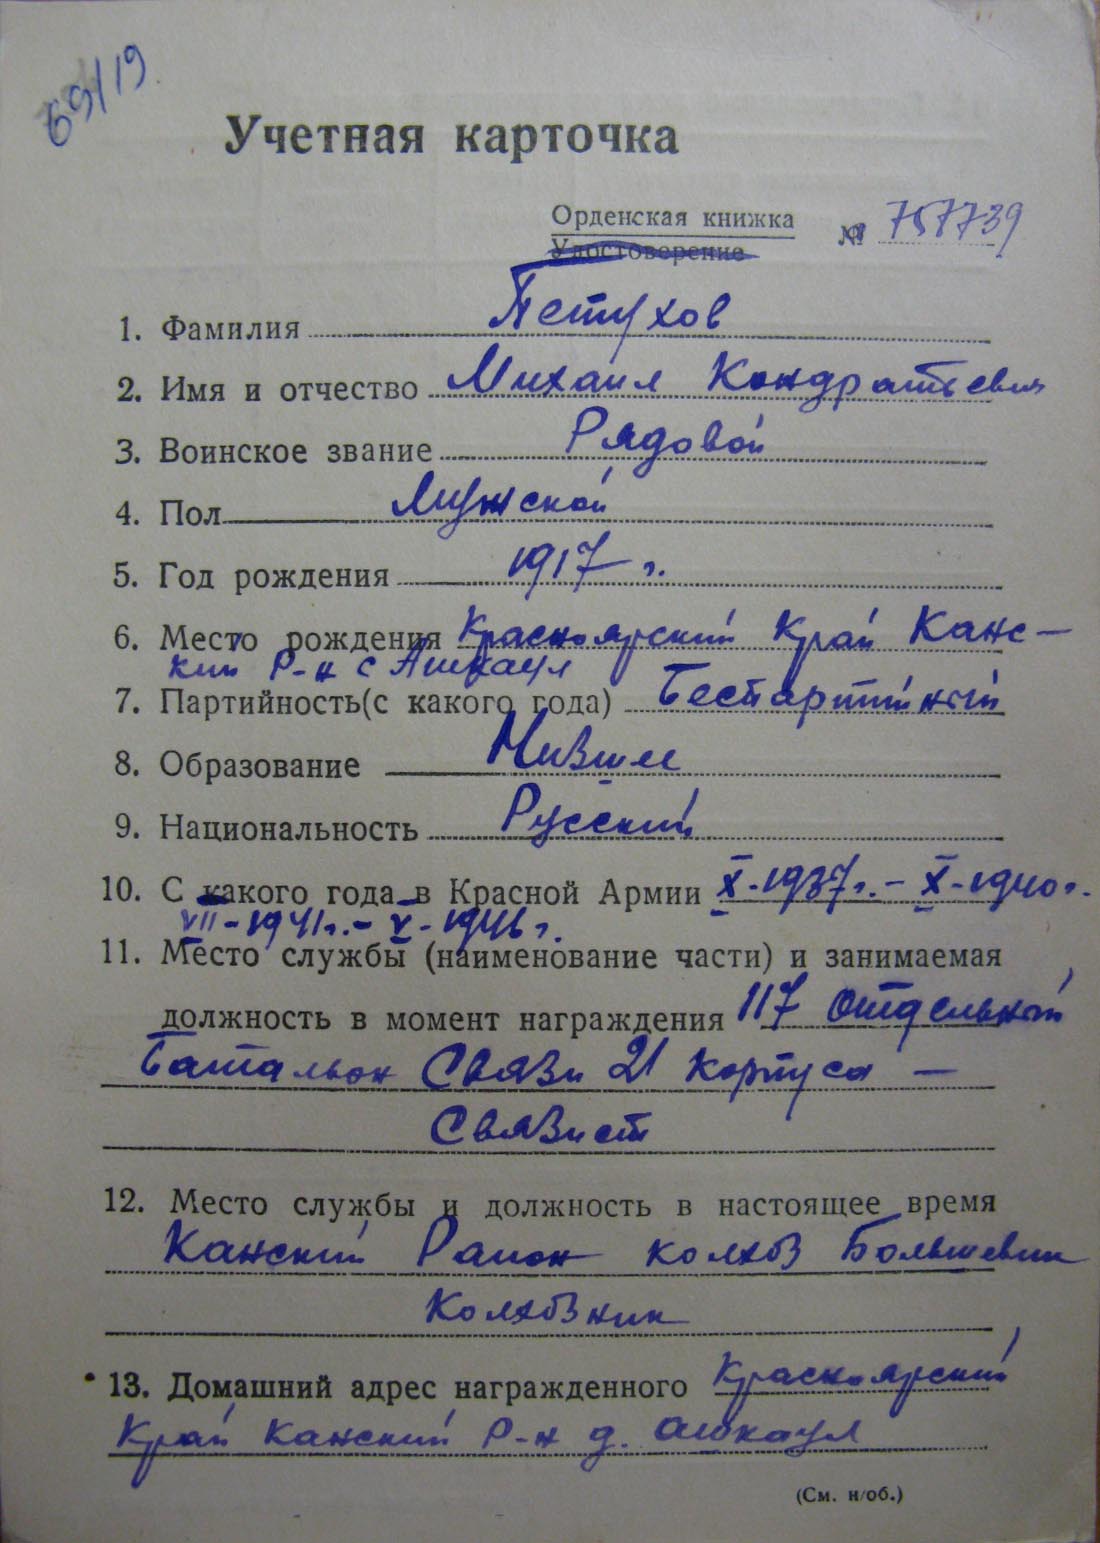 69/19
Учетная карточка
Орденская книжка
Удостоверение
№ 757739
1. Фамилия Петухов
2. Имя и отчество Михаил Кондратьевич
3. Воинское звание Рядовой
4. Пол Мужской
5. Год рождения 1917 г.
6. Место рождения Красноярский Край Канс-
кий Р-н с Ашкаул
7. Партийность(с какого года) Беспартийный
8. Образование Низшее
9. Национальность Русский
10. С какого года в Красной Армии X-1937г.-X-1940г.
VII-1941г.-V-1946г.
11. Место службы (наименование части) и занимаемая
должность в момент награждения 117 Отдельный
Батальон Связи 21 Корпуса -
Связист
12. Место службы и должность в настоящее время
Канский Район колхоз Большевик
Колхозник
13. Домашний адрес награжденного Красноярский
Край Канский Р-н д. Ашкаул
(См. н/об.)